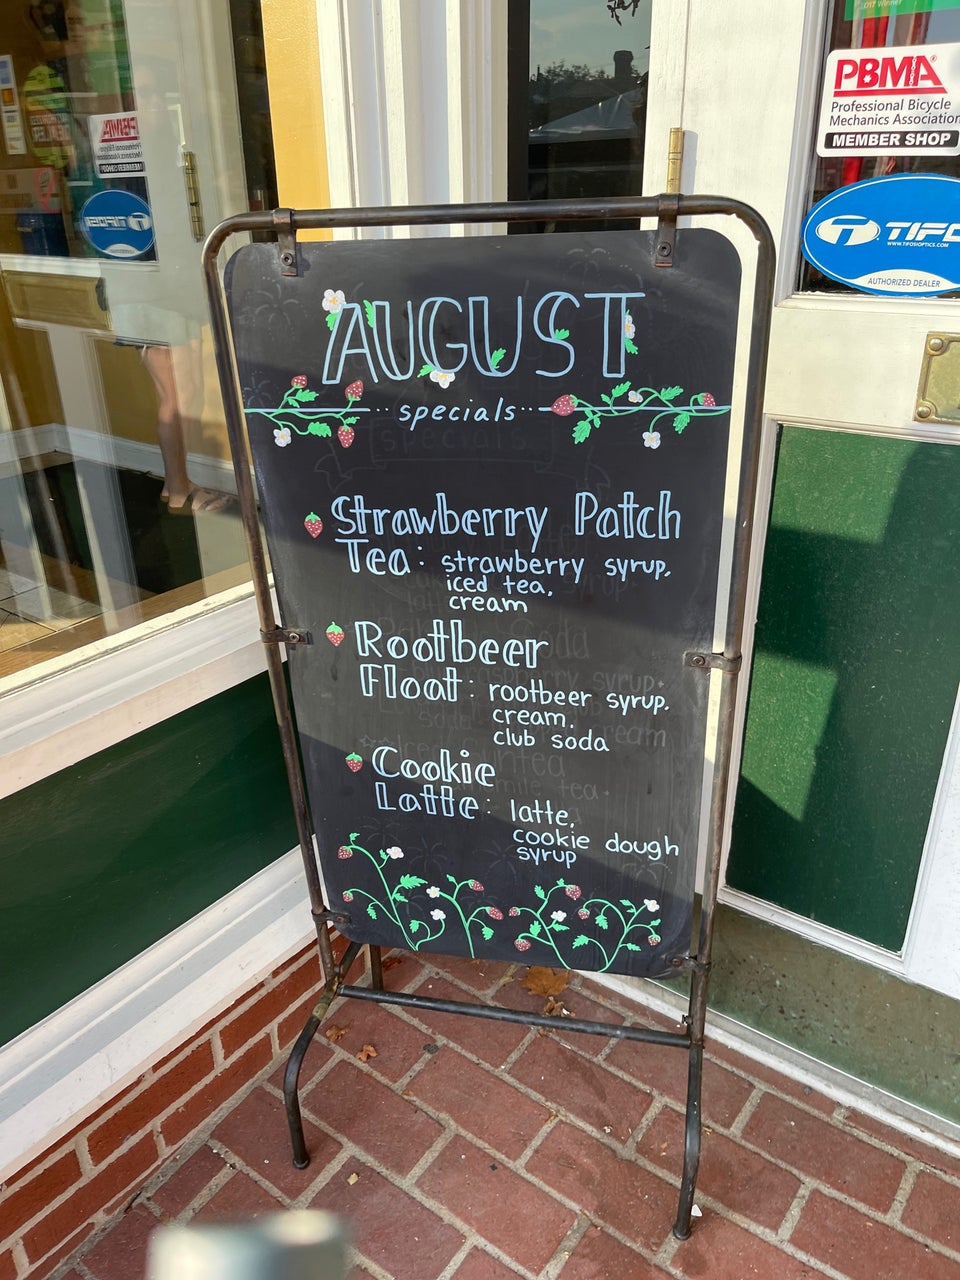 2017 Winner
PBMA
Professional Bicycle
Mechanics Association
MEMBER SHOP
TIFO
WWW.TIFOSIOPTICS.COM
AUTHORIZED DEALER
AUGUST
specials
Strawberry Patch
Tea: strawberry syrup,
iced tea,
cream
Rootbeer
Float: rootbeer syrup,
cream,
club soda
Cookie
Latte: latte,
cookie dough
syrup